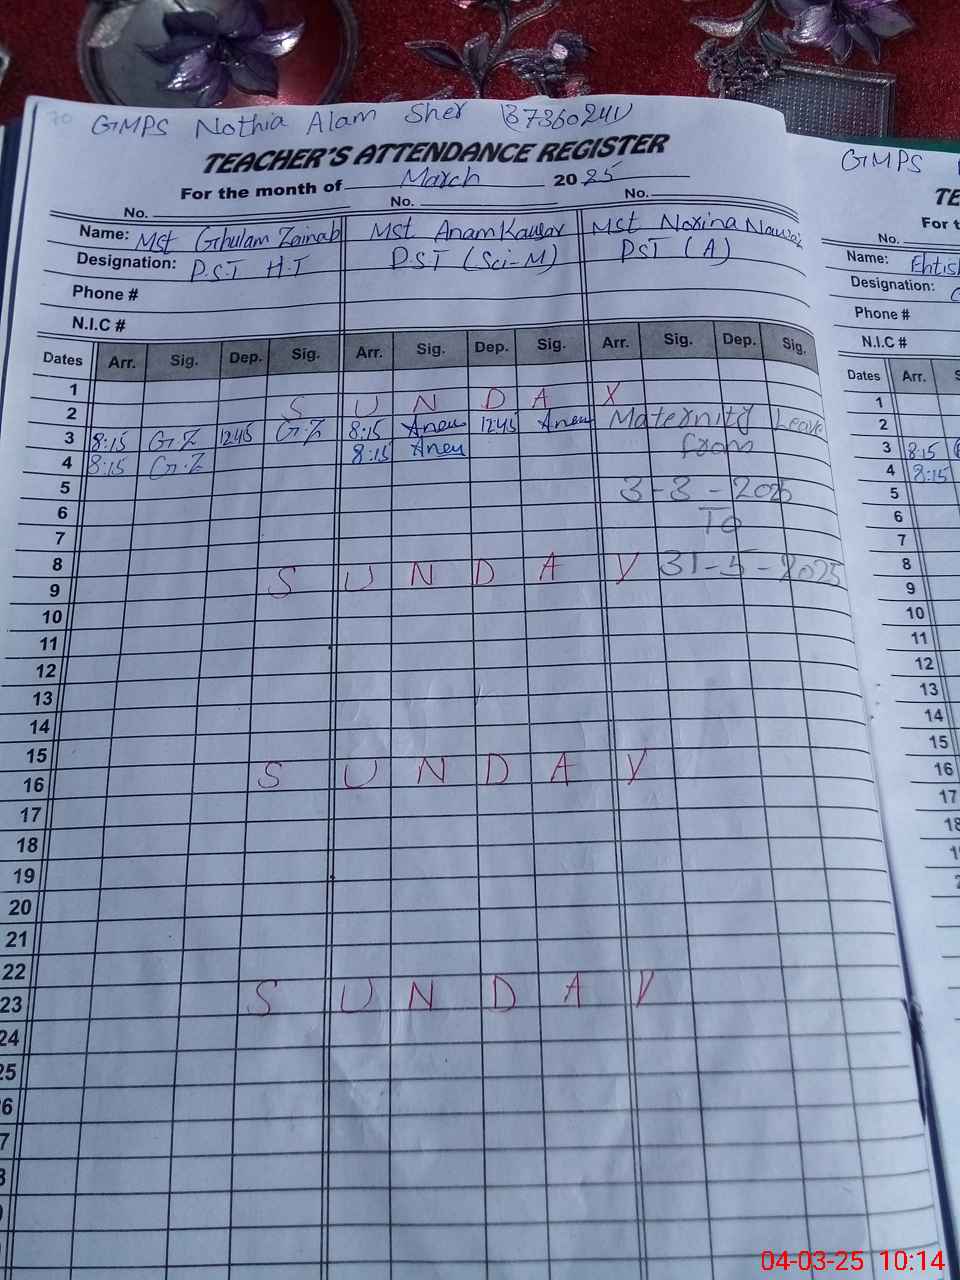 70 GMPS Nothia Alam Sher (37360241)
TEACHER'S ATTENDANCE REGISTER
For the month of March 2025
No. No. No.
Name: Mst Ghulam Zainab Mst Anam Kausar Mst Noxina Nawaz
Designation: P.S.T H.T P.S.T (Sci-M) PST (A)
Phone #
N.I.C #
Dates Arr. Sig. Dep. Sig. Arr. Sig. Dep. Sig. Arr. Sig. Dep. Sig.
1
2 S U N D A Y
3 8:15 G.Z 1245 G.Z 8:15 Anam 1245 Anam Maternity Leave
4 8:15 G.Z 8:15 Anam from
5 3-3-2025
6 TO
7
8 31-5-2025
9 S U N D A Y
10
11
12
13
14
15
16 S U N D A Y
17
18
19
20
21
22
23 S U N D A Y
24
25
6
7
8
GMPS
TE
For t
No.
Name: Ehtis
Designation:
Phone #
N.I.C #
Dates Arr. S
1
2
3 8:15
4 8:15
5
6
7
8
9
10
11
12
13
14
15
16
17
18
04-03-25 10:14